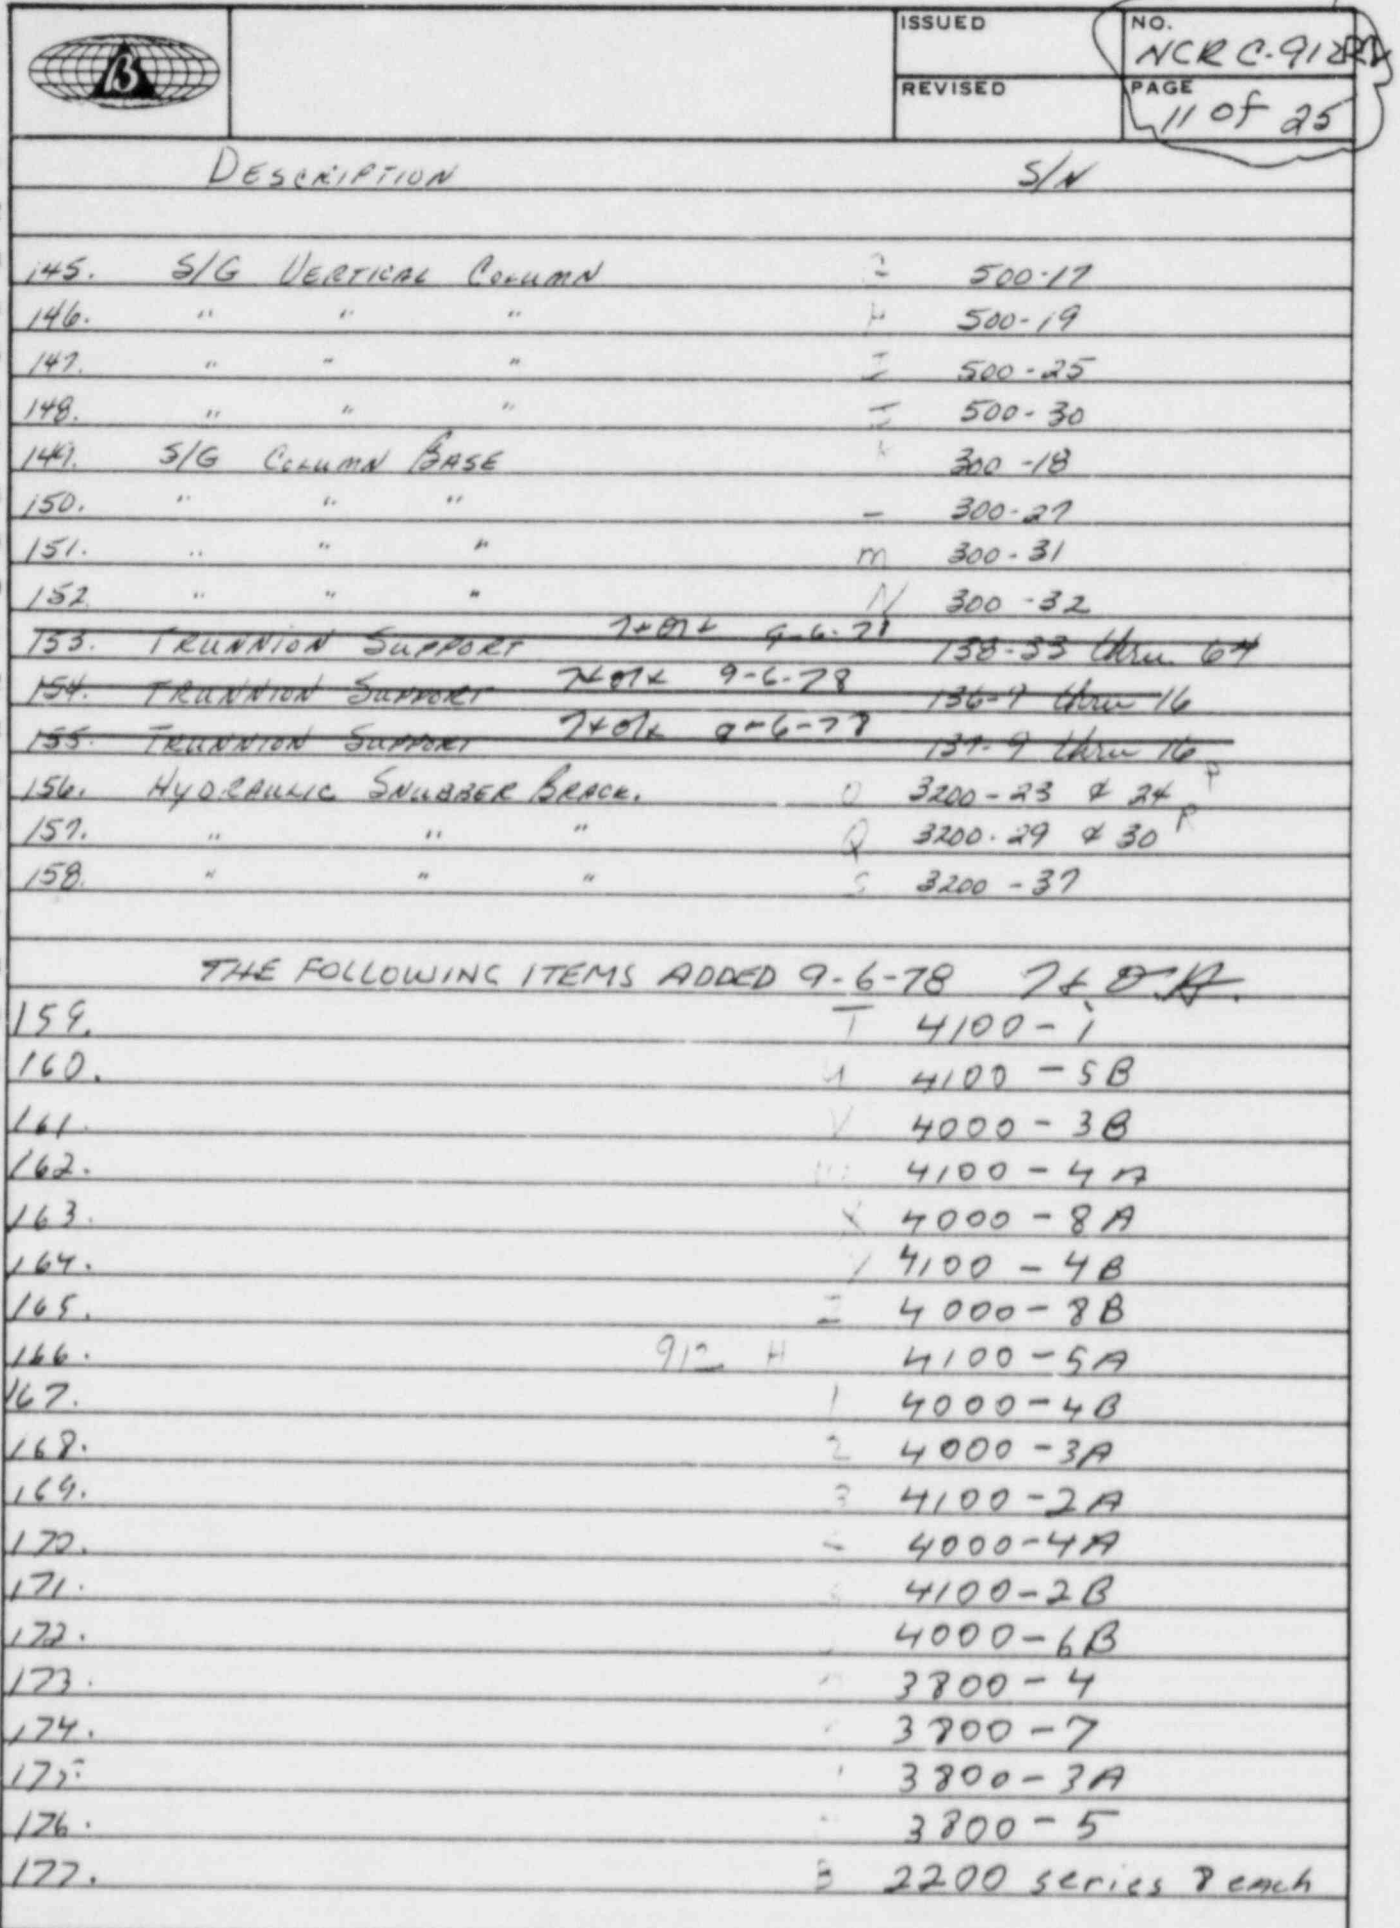 ISSUED
NO.
NCR C-912
REVISED
PAGE
11 of 25
DESCRIPTION S/N
145. S/G VERTICAL COLUMN 500-17
146. " " " H 500-19
147. " " " I 500-25
148. " " " J 500-30
149. S/G COLUMN BASE K 300-18
150. " " " 300-27
151. " " " m 300-31
152 " " " N 300-32
153. TRUNNION SUPPORT 9-6-78 138-33 thru 64
154. TRUNNION SUPPORT 9-6-78 136-9 thru 16
155. TRUNNION SUPPORT 9-6-78 137-9 thru 16
156. HYDRAULIC SNUBBER BRACK. O 3200-23 & 24 P
157. " " " Q 3200-29 & 30 R
158. " " " S 3200-37
THE FOLLOWING ITEMS ADDED 9-6-78
159. T 4100-1
160. U 4100-5B
161. V 4000-3B
162. 4100-4A
163. X 4000-8A
164. Y 4100-4B
165. Z 4000-8B
166. 912 H 4100-5A
167. 1 4000-4B
168. 2 4000-3A
169. 3 4100-2A
170. 4000-4A
171. 4100-2B
172. 4000-6B
173. 3800-4
174. 3800-7
175. 3800-3A
176. 3800-5
177. 2200 series 8 each